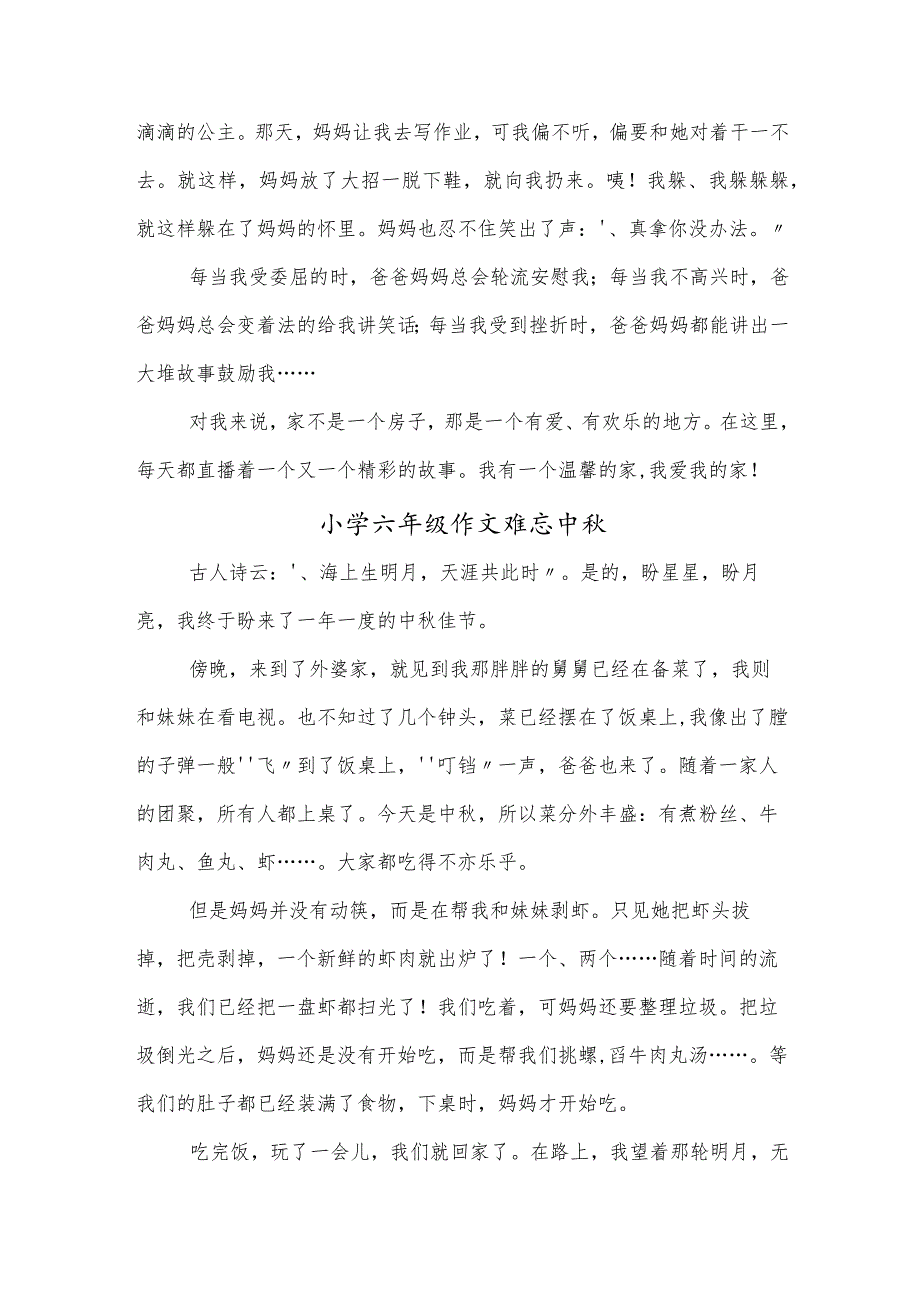 滴滴的公主。那天，妈妈让我去写作业，可我偏不听，偏要和她对着干一不
去。就这样，妈妈放了大招一脱下鞋，就向我扔来。咦！我躲、我躲躲躲，
就这样躲在了妈妈的怀里。妈妈也忍不住笑出了声：'、真拿你没办法。〃
每当我受委屈的时，爸爸妈妈总会轮流安慰我；每当我不高兴时，爸
爸妈妈总会变着法的给我讲笑话；每当我受到挫折时，爸爸妈妈都能讲出一
大堆故事鼓励我……
对我来说，家不是一个房子，那是一个有爱、有欢乐的地方。在这里，
每天都直播着一个又一个精彩的故事。我有一个温馨的家,我爱我的家！
小学六年级作文难忘中秋
古人诗云：'、海上生明月，天涯共此时〃。是的，盼星星，盼月
亮，我终于盼来了一年一度的中秋佳节。
傍晚，来到了外婆家，就见到我那胖胖的舅舅已经在备菜了，我则
和妹妹在看电视。也不知过了几个钟头，菜已经摆在了饭桌上,我像出了膛
的子弹一般''飞〃到了饭桌上，''叮铛〃一声，爸爸也来了。随着一家人
的团聚，所有人都上桌了。今天是中秋，所以菜分外丰盛：有煮粉丝、牛
肉丸、鱼丸、虾……。大家都吃得不亦乐乎。
但是妈妈并没有动筷，而是在帮我和妹妹剥虾。只见她把虾头拔
掉，把壳剥掉，一个新鲜的虾肉就出炉了！一个、两个……随着时间的流
逝，我们已经把一盘虾都扫光了！我们吃着，可妈妈还要整理垃圾。把垃
圾倒光之后，妈妈还是没有开始吃，而是帮我们挑螺,舀牛肉丸汤……。等
我们的肚子都已经装满了食物，下桌时，妈妈才开始吃。
吃完饭，玩了一会儿，我们就回家了。在路上，我望着那轮明月，无